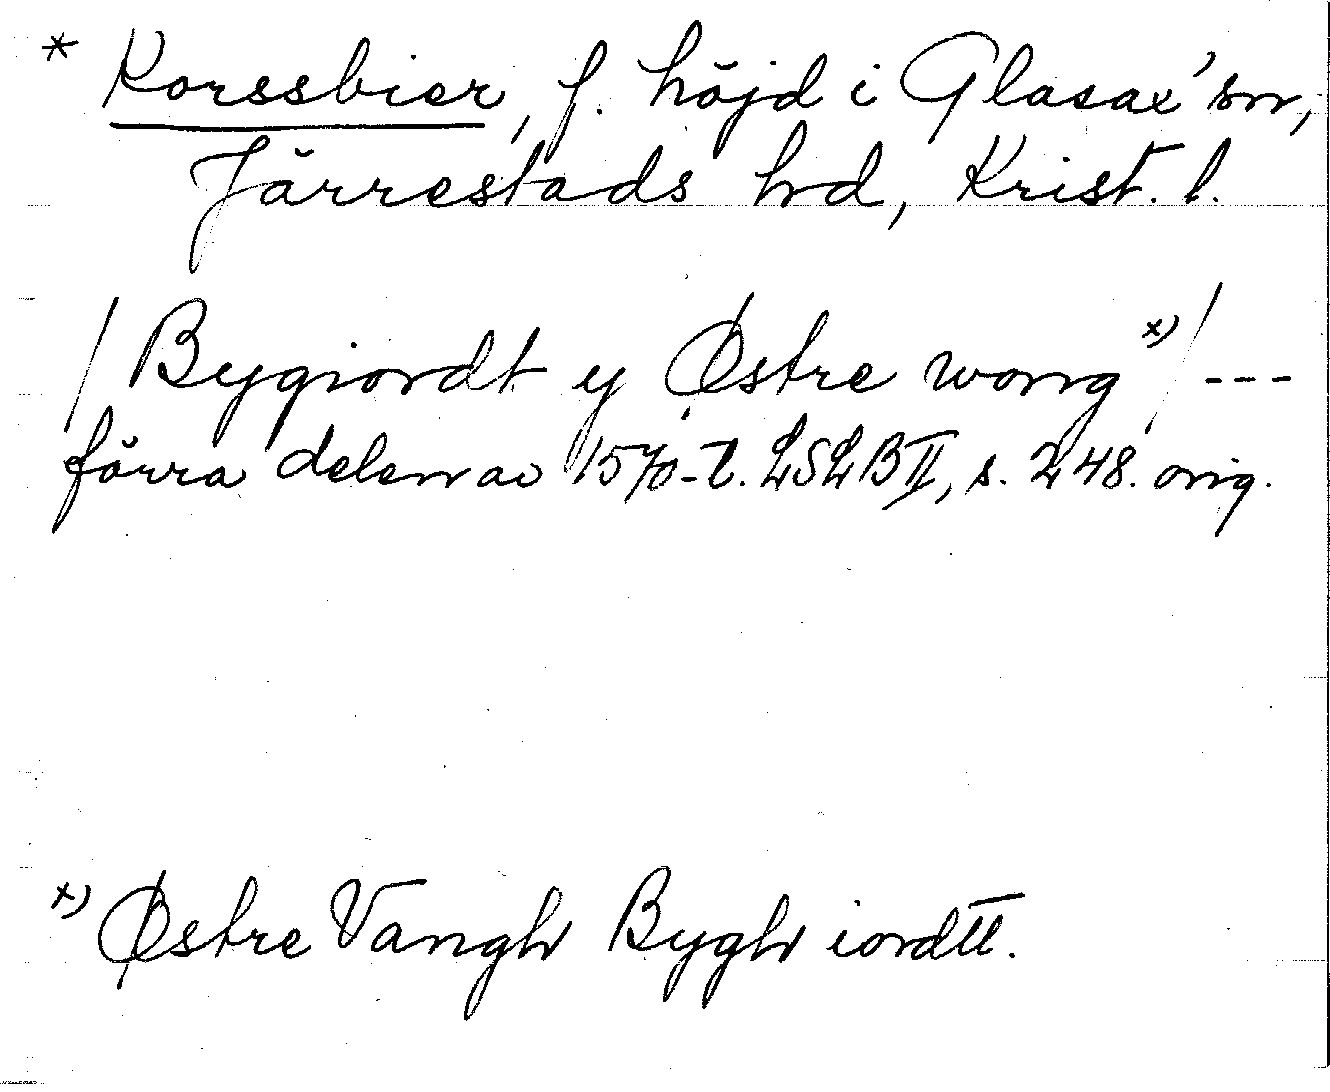 * Korssbier, f. höjd i Glasax' sn,
Järrestads hd, Krist. l.
/ Bygiordt y Østre wong *) / ---
förra delen av 1570-t. LSLB II, s. 248. orig.
*) Østre Vangh Bygh iordtt.